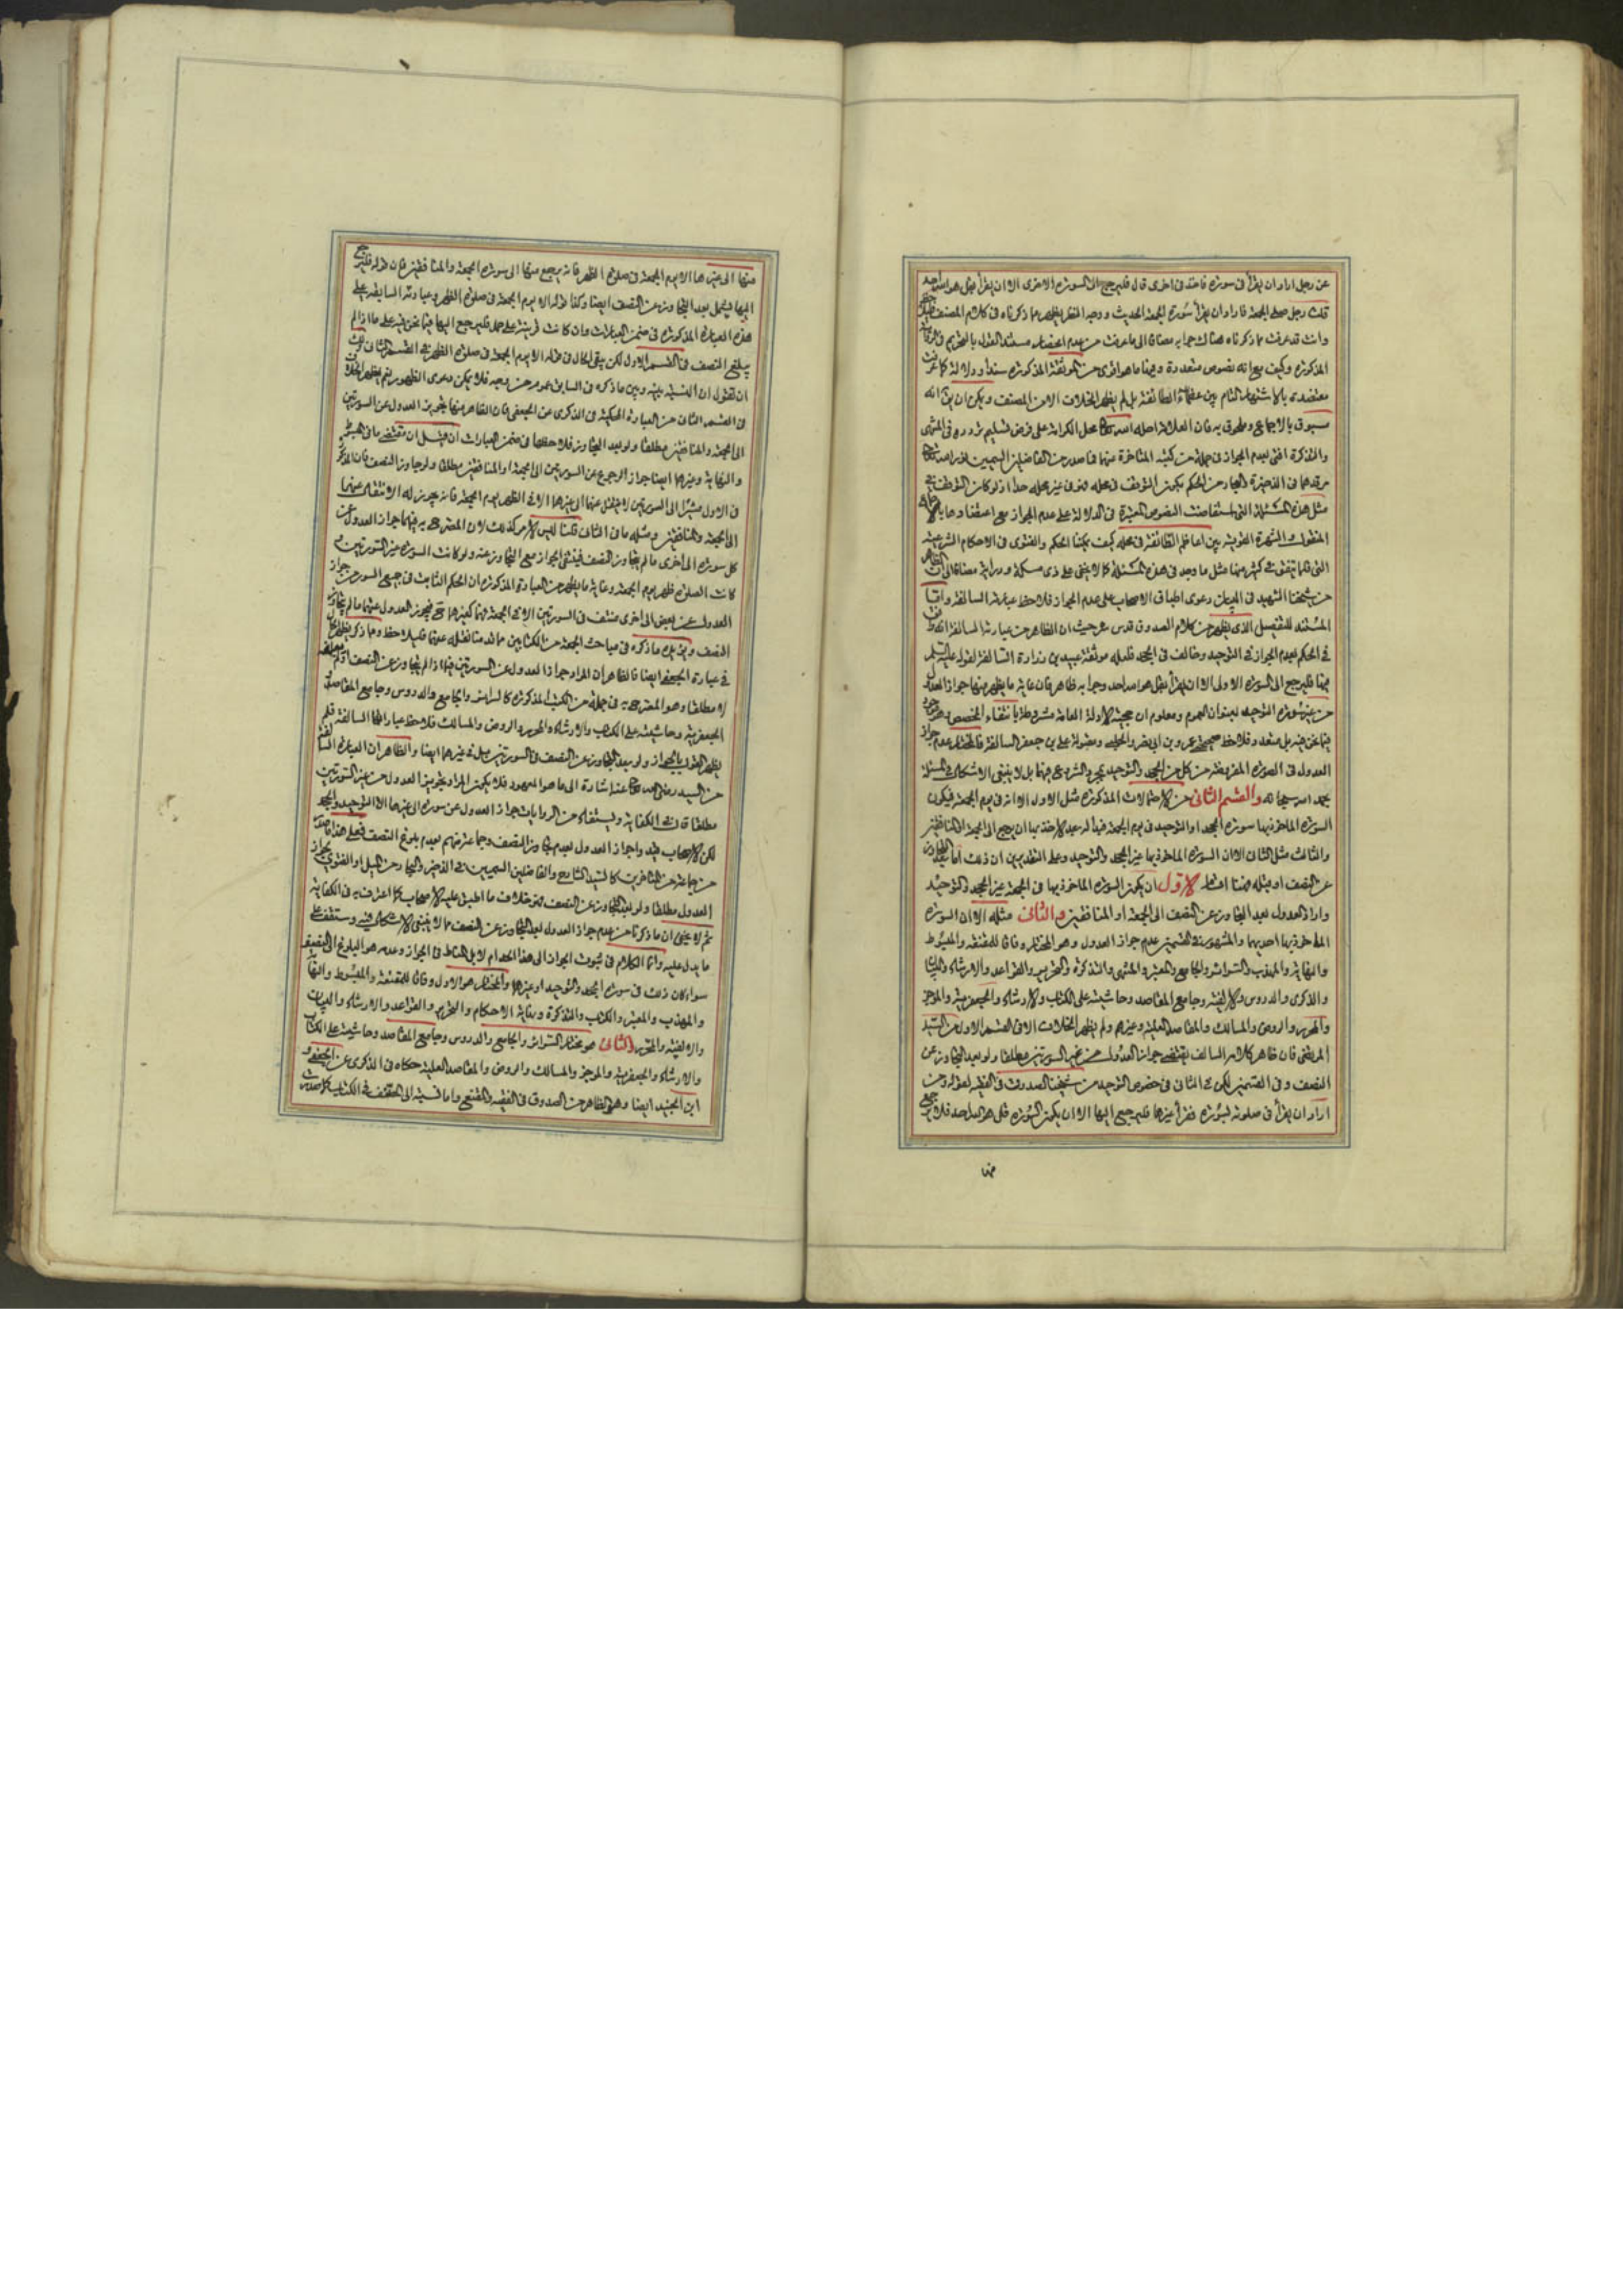 عن رجل اراد ان يقرأ فى سورة فاخذ فى اخرى قال فليرجع الى السورة الاولى الا ان يقرأ بقل هو الله احد
قلت رجل صلى الجمعة فاراد ان يقرأ سورة الجمعة الحديث ووجه النظر يظهر مما ذكرناه فى كلام المصنف
وانت قد عرفت مما ذكرناه هناك جوابه مضافا الى ما عرفت من عدم انحصار مستند القول بالتحريم فى
المذكورة وكيف مع انه نصوص متعددة وفيها ما هو اقوى من الموثقة المذكورة سندا ودلالة كما عرفت
معتضدة بالاشتهار التام بين عظماء الطائفة بل لم يظهر الخلاف الا من المصنف ويمكن ان يق انه
مسبوق بالاجماع وملحوق به فان العلامة احله الله تعالى محل الكرامة على فرض تسليم تردده فى المنتهى
والتذكرة افتى بعدم الجواز فى جملة من كتبه المتأخرة عنهما فما صدر من الفاضلين السميين نور الله تعالى
مرقدهما فى الذخيرة والبحار من الحكم بكون التوقف فى محله فهو فى غير محله جدا اذ لو كان التوقف فى
مثل هذه المسئلة التى استفاضت النصوص المعتبرة فى الدلالة على عدم الجواز مع اعتضادها بالاجماع
المنقول والشهرة القوية بين اعاظم الطائفة فى محله كيف يمكننا الحكم والفتوى فى الاحكام الشرعية
التى قلما يتفق فى كثير منها مثل ما وجد فى هذه المسئلة كما لا يخفى على ذى مسكة ودراية مضافا الى ان الظاهر
من شيخنا الشهيد فى البيان دعوى اطباق الاصحاب على عدم الجواز فلاحظ عبارته السالفة واما
المستند للتفصيل الذى يظهر من كلام الصدوق قدس سره حيث ان الظاهر من عبارته السالفة انه
فى الحكم بعدم الجواز فى التوحيد وخالف فى الجحد فلعله موثقة عبيد بن زرارة السالفة لقوله عليه السلم
فيها فليرجع الى السورة الاولى الا ان يقرأ بقل هو الله احد وجوابه ظاهر فان غاية ما يظهر منها جواز العدول
من غير سورة التوحيد بعنوان العموم ومعلوم ان حجية الادلة العامة مشروطة بانتفاء المخصص وهو موجود
فيما نحن فيه بل متعدد فلاحظ صحيحة عمرو بن ابى نصر والحلبى ومقبولة على بن جعفر السالفة فالمختار عدم جواز
العدول فى الصورة المفروضة من كل من الجحد والتوحيد بمجرد الشروع فيهما بل لا ينبغى الاشكال فى المسئلة
بحمد الله سبحانه والقسم الثانى من الاحتمالات المذكورة مثل الاول الا انه فى يوم الجمعة فيكون
السورة الماخوذ بها سورة الجحد او التوحيد فى يوم الجمعة فبدا له بعد الاخذ بها ان يرجع الى الجمعة او المنافقين
والثالث مثل الثانى الا ان السورة الماخوذ بها غير الجحد والتوحيد وعلى التقديرين ان ذلك اما بعد التجاوز
عن النصف او قبله فهنا اقسام الاول ان يكون السورة الماخوذ بها فى الجمعة غير الجحد والتوحيد
واراد العدول بعد التجاوز عن النصف الى الجمعة او المنافقين والثانى مثله الا ان السورة
الماخوذ بها احديهما والمشهور فى القسمين عدم جواز العدول وهو المختار وفاقا للمقنعة والمبسوط
والنهاية والمهذب والسرائر والجامع والمعتبر والمنتهى والتذكرة والتحرير والقواعد والارشاد والبيان
والذكرى والدروس والالفية وجامع المقاصد وحاشيته على الكتاب والارشاد والجعفرية والموجز
والمحرر والروض والمسالك والمقاصد العلية وغيرهم ولم يظهر الخلاف الا فى القسم الاول من السيد
المرتضى فان ظاهر كلامه السالف يقتضى جواز العدول من غير السورتين مطلقا ولو بعد التجاوز عن
النصف وفى القسمين لكن فى الثانى فى خصوص التوحيد من شيخنا الصدوق فى الفقيه لقوله ومن
اراد ان يقرأ فى صلوته بسورة فقرأ غيرها فليرجع اليها الا ان يكون السورة قل هو الله احد فلا يرجع
منها
منها الى غيرها الا يوم الجمعة فى صلوة الظهر فانه يرجع منها الى سورة الجمعة والمنافقين فان قوله فليرجع
اليها يشمل بعد التجاوز عن النصف ايضا وكذا قوله الا يوم الجمعة فى صلوة الظهر وعبارته السابقة على
هذه العبارة المذكورة فى ضمن العبارات وان كانت قرينة على حمل فليرجع اليها فيما نحن فيه على ما اذا لم
يبلغ النصف فى القسم الاول لكن بقى الحال فى قوله الا يوم الجمعة فى صلوة الظهر فى القسم الثانى ولك
ان تقول ان النسبة بينه وبين ما ذكره فى السابق عموم من وجه فلا يمكن دعوى الظهور نعم يظهر الخلاف
فى القسم الثانى من العبارة المحكية فى الذكرى عن الجعفى فان الظاهر منها تجويز العدول عن السورتين
الى الجمعة والمنافقين مطلقا ولو بعد التجاوز فلاحظها فى ضمن العبارات ان قيل ان مقتضى ما فى المبسوط
والنهاية وغيرهما ايضا جواز الرجوع عن السورتين الى الجمعة والمنافقين مطلقا ولو جاوز النصف فان المذكور
فى الاول مشيرا الى السورتين لا ينتقل عنهما الى غيرهما الا فى الظهر يوم الجمعة فانه يجوز له الانتقال عنهما
الى الجمعة والمنافقين ومثله ما فى الثانى قلنا ليس الامر كذلك لان المصرح به فيهما جواز العدول عن
كل سورة الى اخرى ما لم يتجاوز النصف فينتفى الجواز مع التجاوز عنه ولو كانت السورة غير السورتين و
كانت الصلوة ظهر يوم الجمعة وغاية ما يظهر من العبارة المذكورة ان الحكم الثابت فى جميع السور من جواز
العدول عن بعض الى اخرى منتف فى السورتين الا فى الجمعة فهما كغيرهما فيجوز العدول عنهما ما لم يتجاوز
النصف ويؤيده ما ذكره فى مباحث الجمعة من الكتابين ما قدمنا نقله عنهما فليلاحظ ومما ذكر يظهر الحال
فى عبارة الجعفى ايضا فالظاهر ان المراد جواز العدول عن السورتين فيما اذا لم يتجاوز عن النصف
لا مطلقا وهو المصرح به فى جملة من الكتب المذكورة كالسرائر والجامع والدروس وجامع المقاصد و
الجعفرية وحاشيته على الكتاب والارشاد والمحرر والروض والمسالك فلاحظ عباراتها السالفة فلم
يظهر القول بالجواز ولو بعد التجاوز عن النصف فى السورتين بل فى غيرهما ايضا والظاهر ان العبارة السالفة
من السيد رضى الله تعالى عنه اشارة الى ما هو المعهود فلا يكون المراد تجويز العدول من غير السورتين
مطلقا قال فى الكفاية ويستفاد من الروايات جواز العدول عن سورة الى غيرها الا التوحيد والجحد
لكن الاصحاب قيدوا جواز العدول بعدم تجاوز النصف وجماعة منهم بعدم بلوغ النصف فعلى هذا ما صدر
من جماعة من المتأخرين كالسيد الشارح والفاضلين السميين فى الذخيرة والبحار من الميل او الفتوى بجواز
العدول مطلقا ولو بعد التجاوز عن النصف فهو خلاف ما اطبق عليه الاصحاب كما اعترف به فى الكفاية
ثم لا يخفى ان ما ذكرنا من عدم جواز العدول بعد التجاوز عن النصف مما لا ينبغى الاشكال فيه وستقف على
ما يدل عليه وانما الكلام فى ثبوت الجواز الى هذا المقدار ام لا بل المناط فى الجواز وعدمه هو البلوغ الى النصف
سواء كان ذلك فى سورة الجحد والتوحيد او غيرها والمختار هو الاول وفاقا للمقنعة والمبسوط والنهاية
والمهذب والمعتبر والكتاب والتذكرة ونهاية الاحكام والتحرير والقواعد والارشاد والبيان
والالفية والمحرر والثانى هو مختار السرائر والجامع والدروس وجامع المقاصد وحاشيته على الكتاب
والارشاد والجعفرية والموجز والمسالك والروض والمقاصد العلية حكاه فى الذكرى عن الجعفى و
ابن الجنيد ايضا وهو الظاهر من الصدوق فى الفقيه والمقنع واما نسبته الى المحقق فى الكتاب كما صدرت